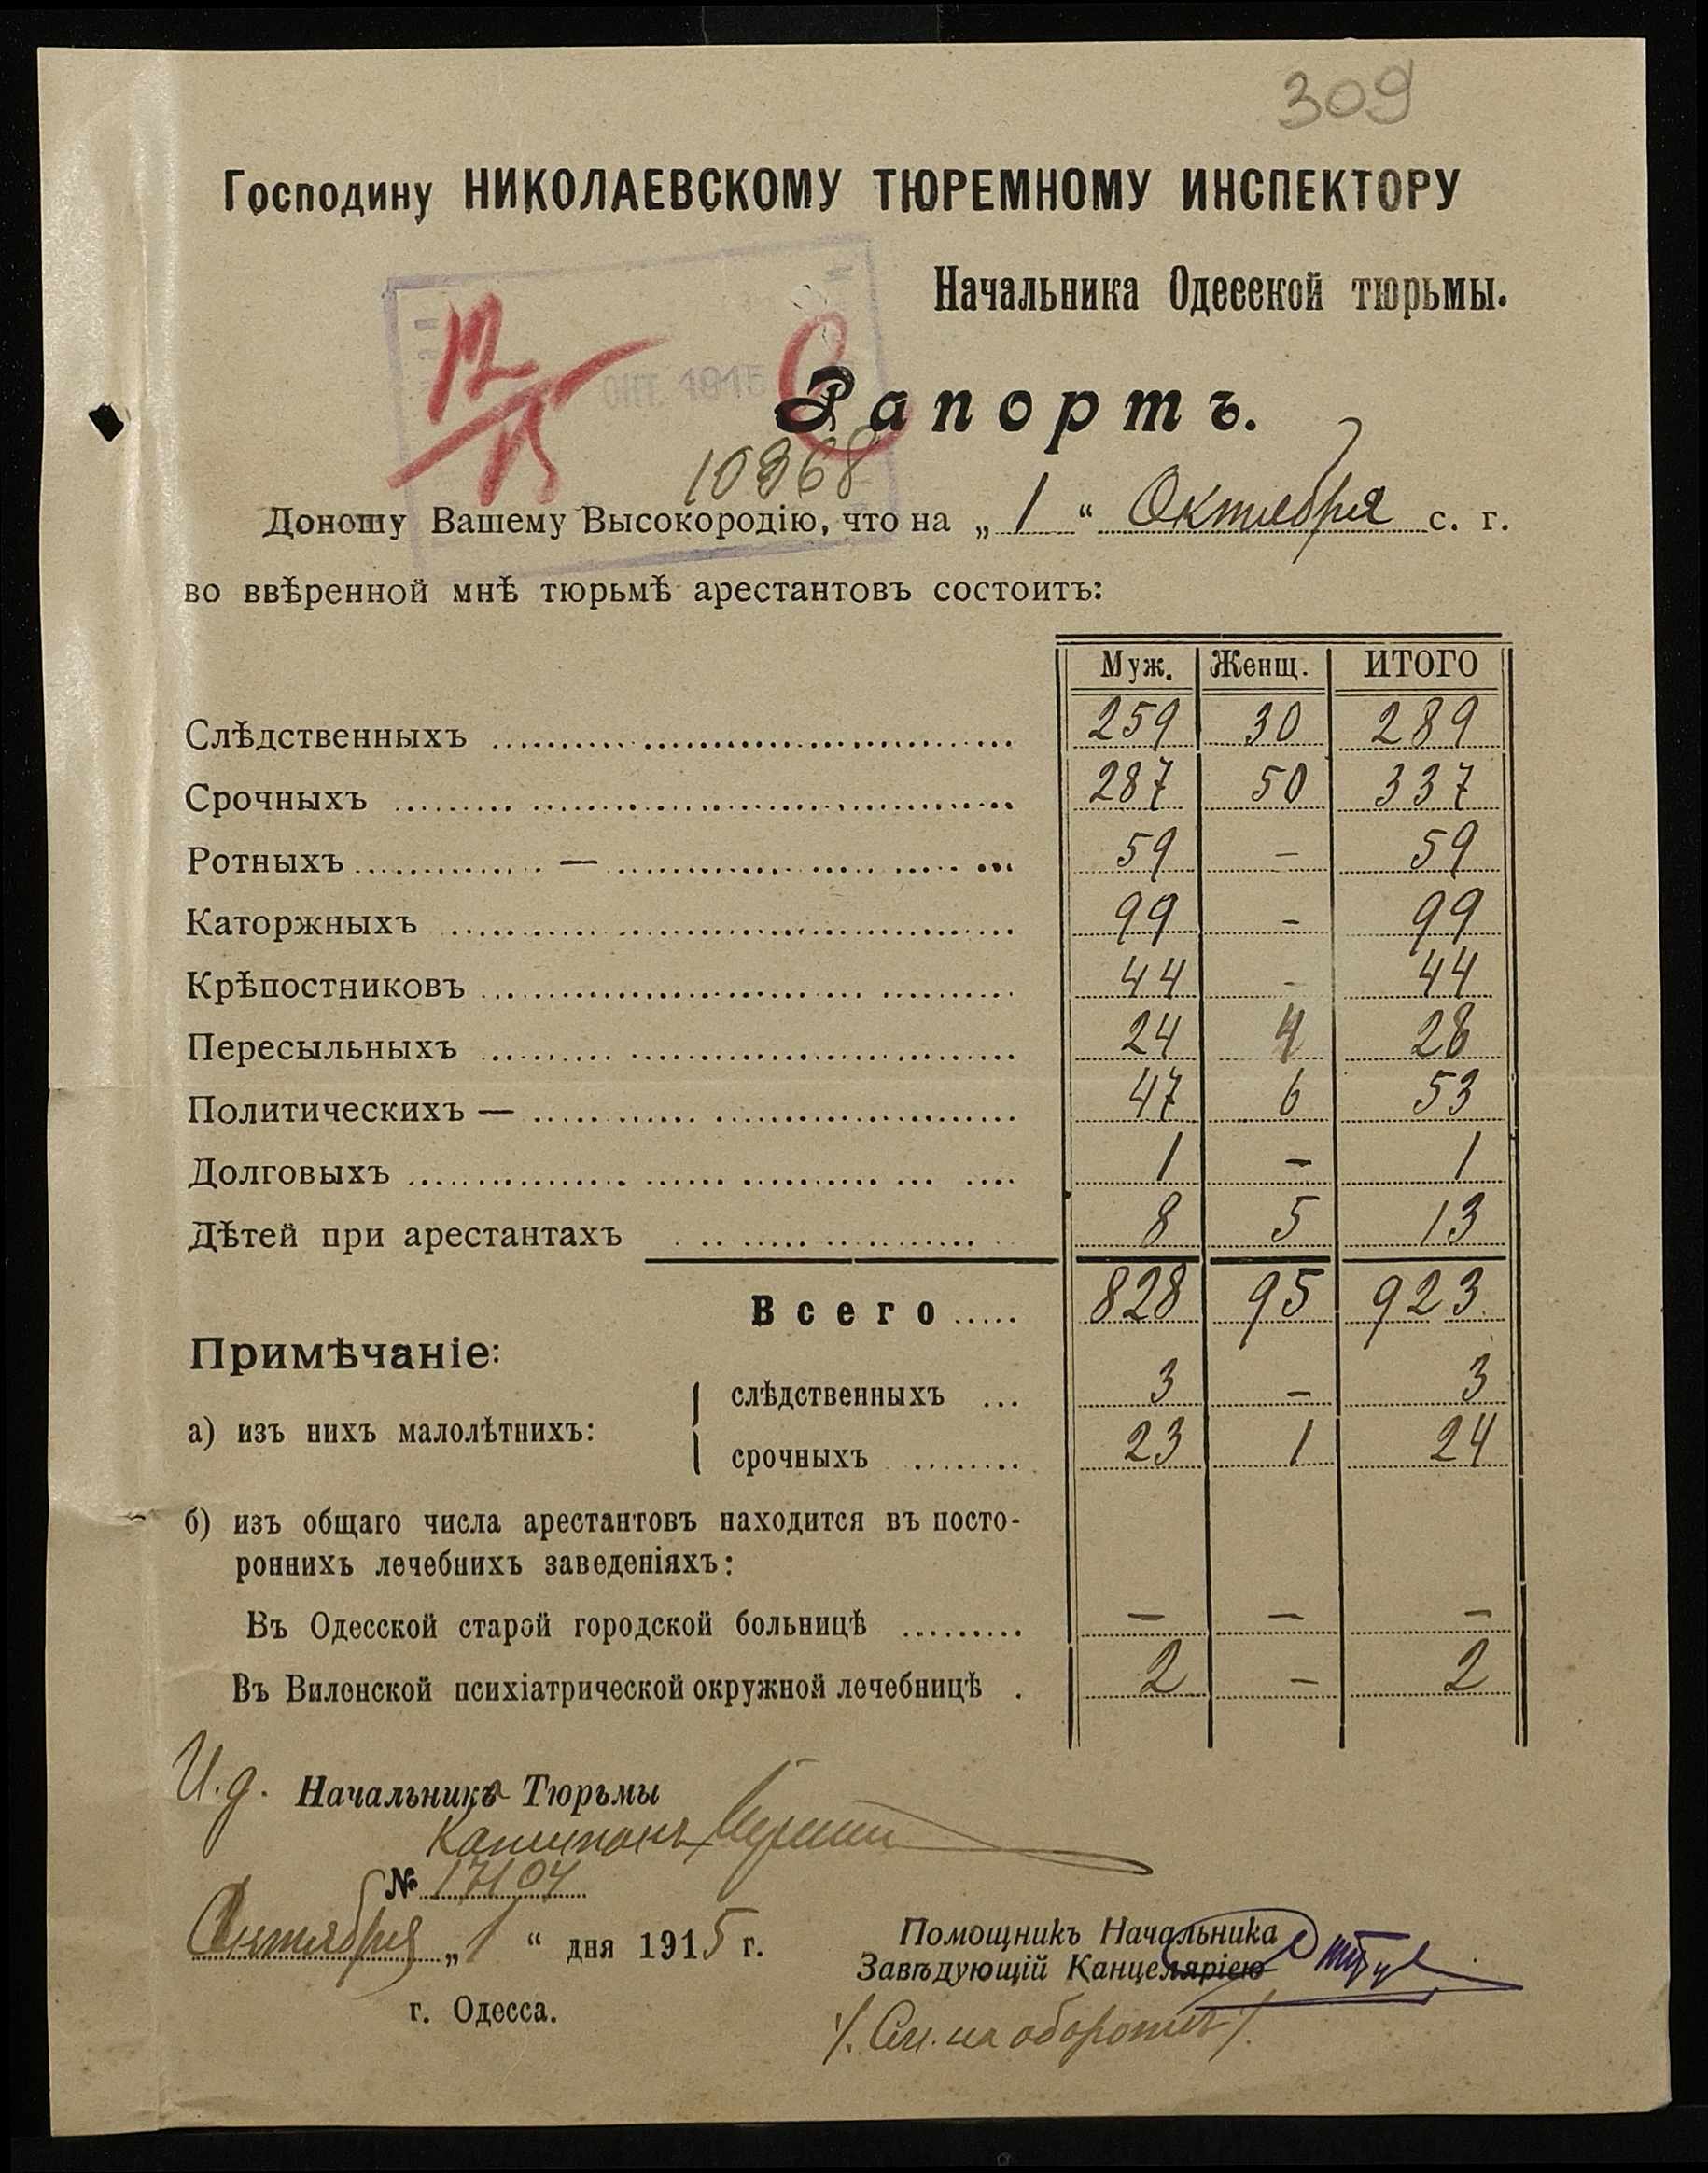 309
Господину НИКОЛАЕВСКОМУ ТЮРЕМНОМУ ИНСПЕКТОРУ
Начальника Одесской тюрьмы.
12/15
ОКТ. 1915
Рапортъ.
10368
Доношу Вашему Высокородію, что на „ 1 “ Октября с. г.
во ввѣренной мнѣ тюрьмѣ арестантовъ состоитъ:
Муж. Женщ. ИТОГО
Слѣдственныхъ 259 30 289
Срочныхъ 287 50 337
Ротныхъ — 59 - 59
Каторжныхъ 99 - 99
Крѣпостниковъ 44 - 44
Пересыльныхъ 24 4 28
Политическихъ — 47 6 53
Долговыхъ 1 - 1
Дѣтей при арестантахъ 8 5 13
Всего 828 95 923
Примѣчаніе:
слѣдственныхъ 3 - 3
а) изъ нихъ малолѣтнихъ:
срочныхъ 23 1 24
б) изъ общаго числа арестантовъ находится въ посто-
роннихъ лечебнихъ заведеніяхъ:
Въ Одесской старой городской больницѣ - - -
Въ Виленской психіатрической окружной лечебницѣ 2 - 2
И.д. Начальника Тюрьмы
Капитанъ
№ 17104
Октября „ 1 “ дня 1915 г.
г. Одесса.
Помощникъ Начальника
Завѣдующій Канцеляріею
/. См. на оборотѣ /.